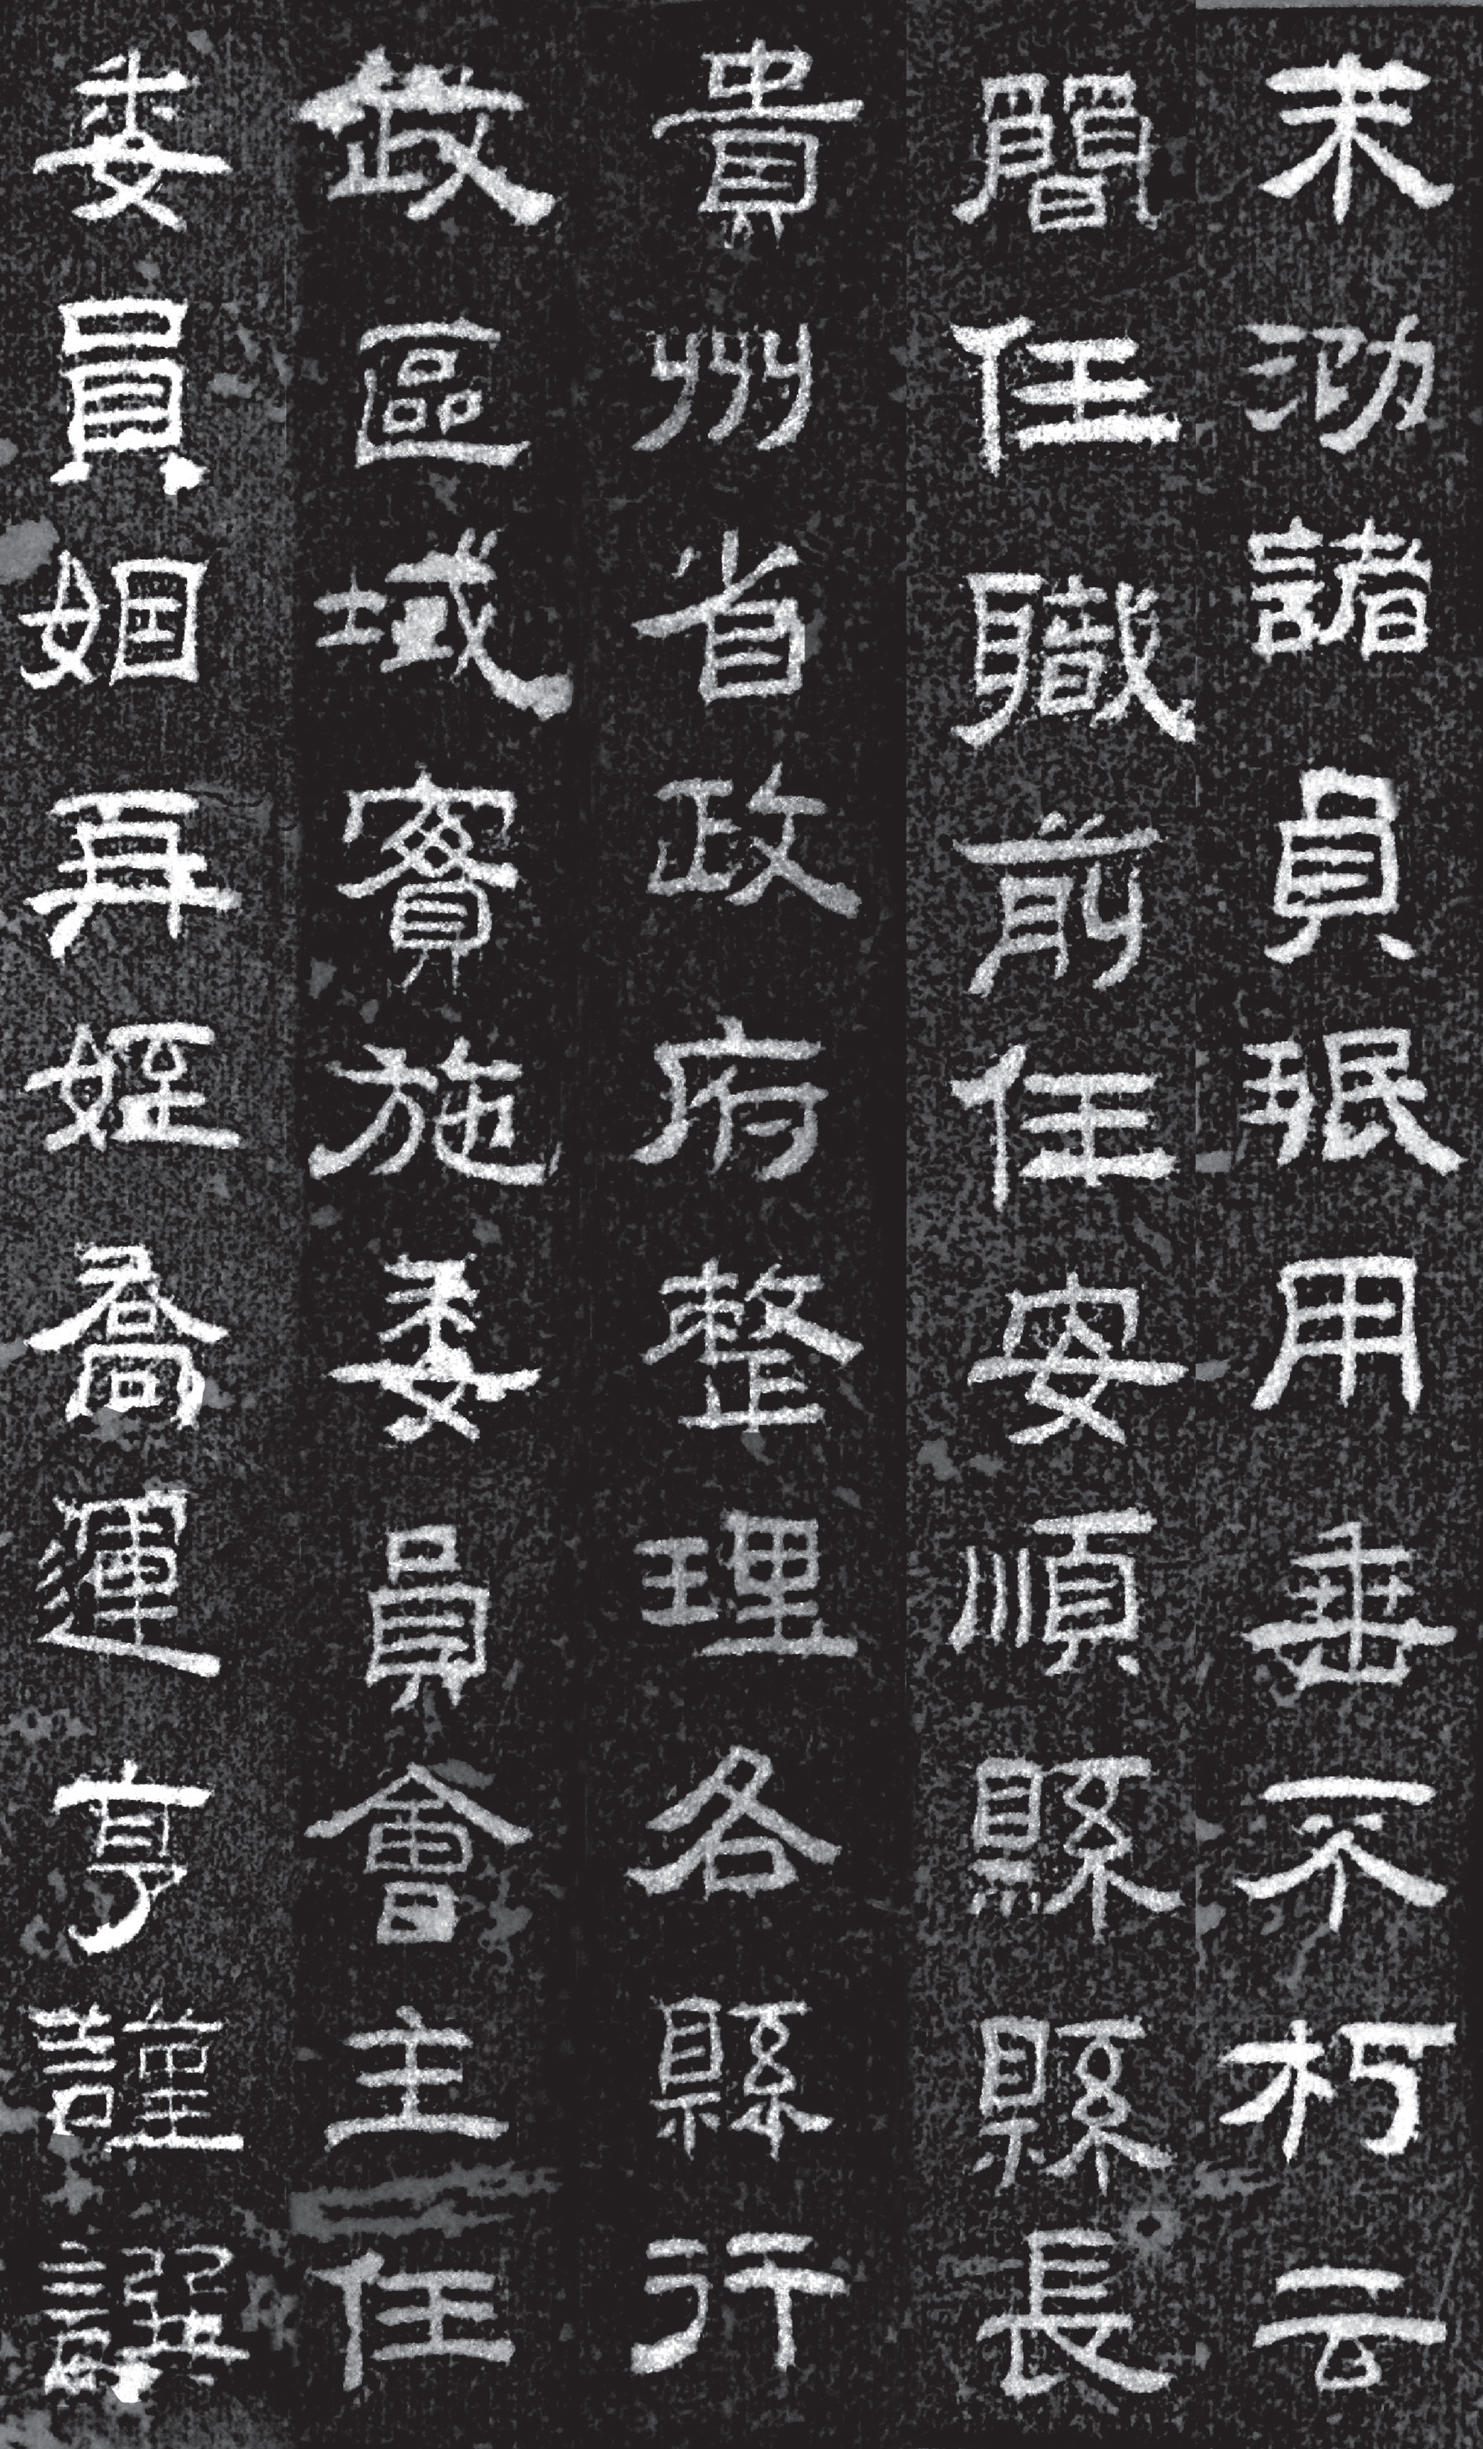 末泐諸貞珉用垂不朽云
簡任職前任安順縣縣長
貴州省政府整理各縣行
政區域實施委員會主任
委員姻再姪喬運亨謹譔